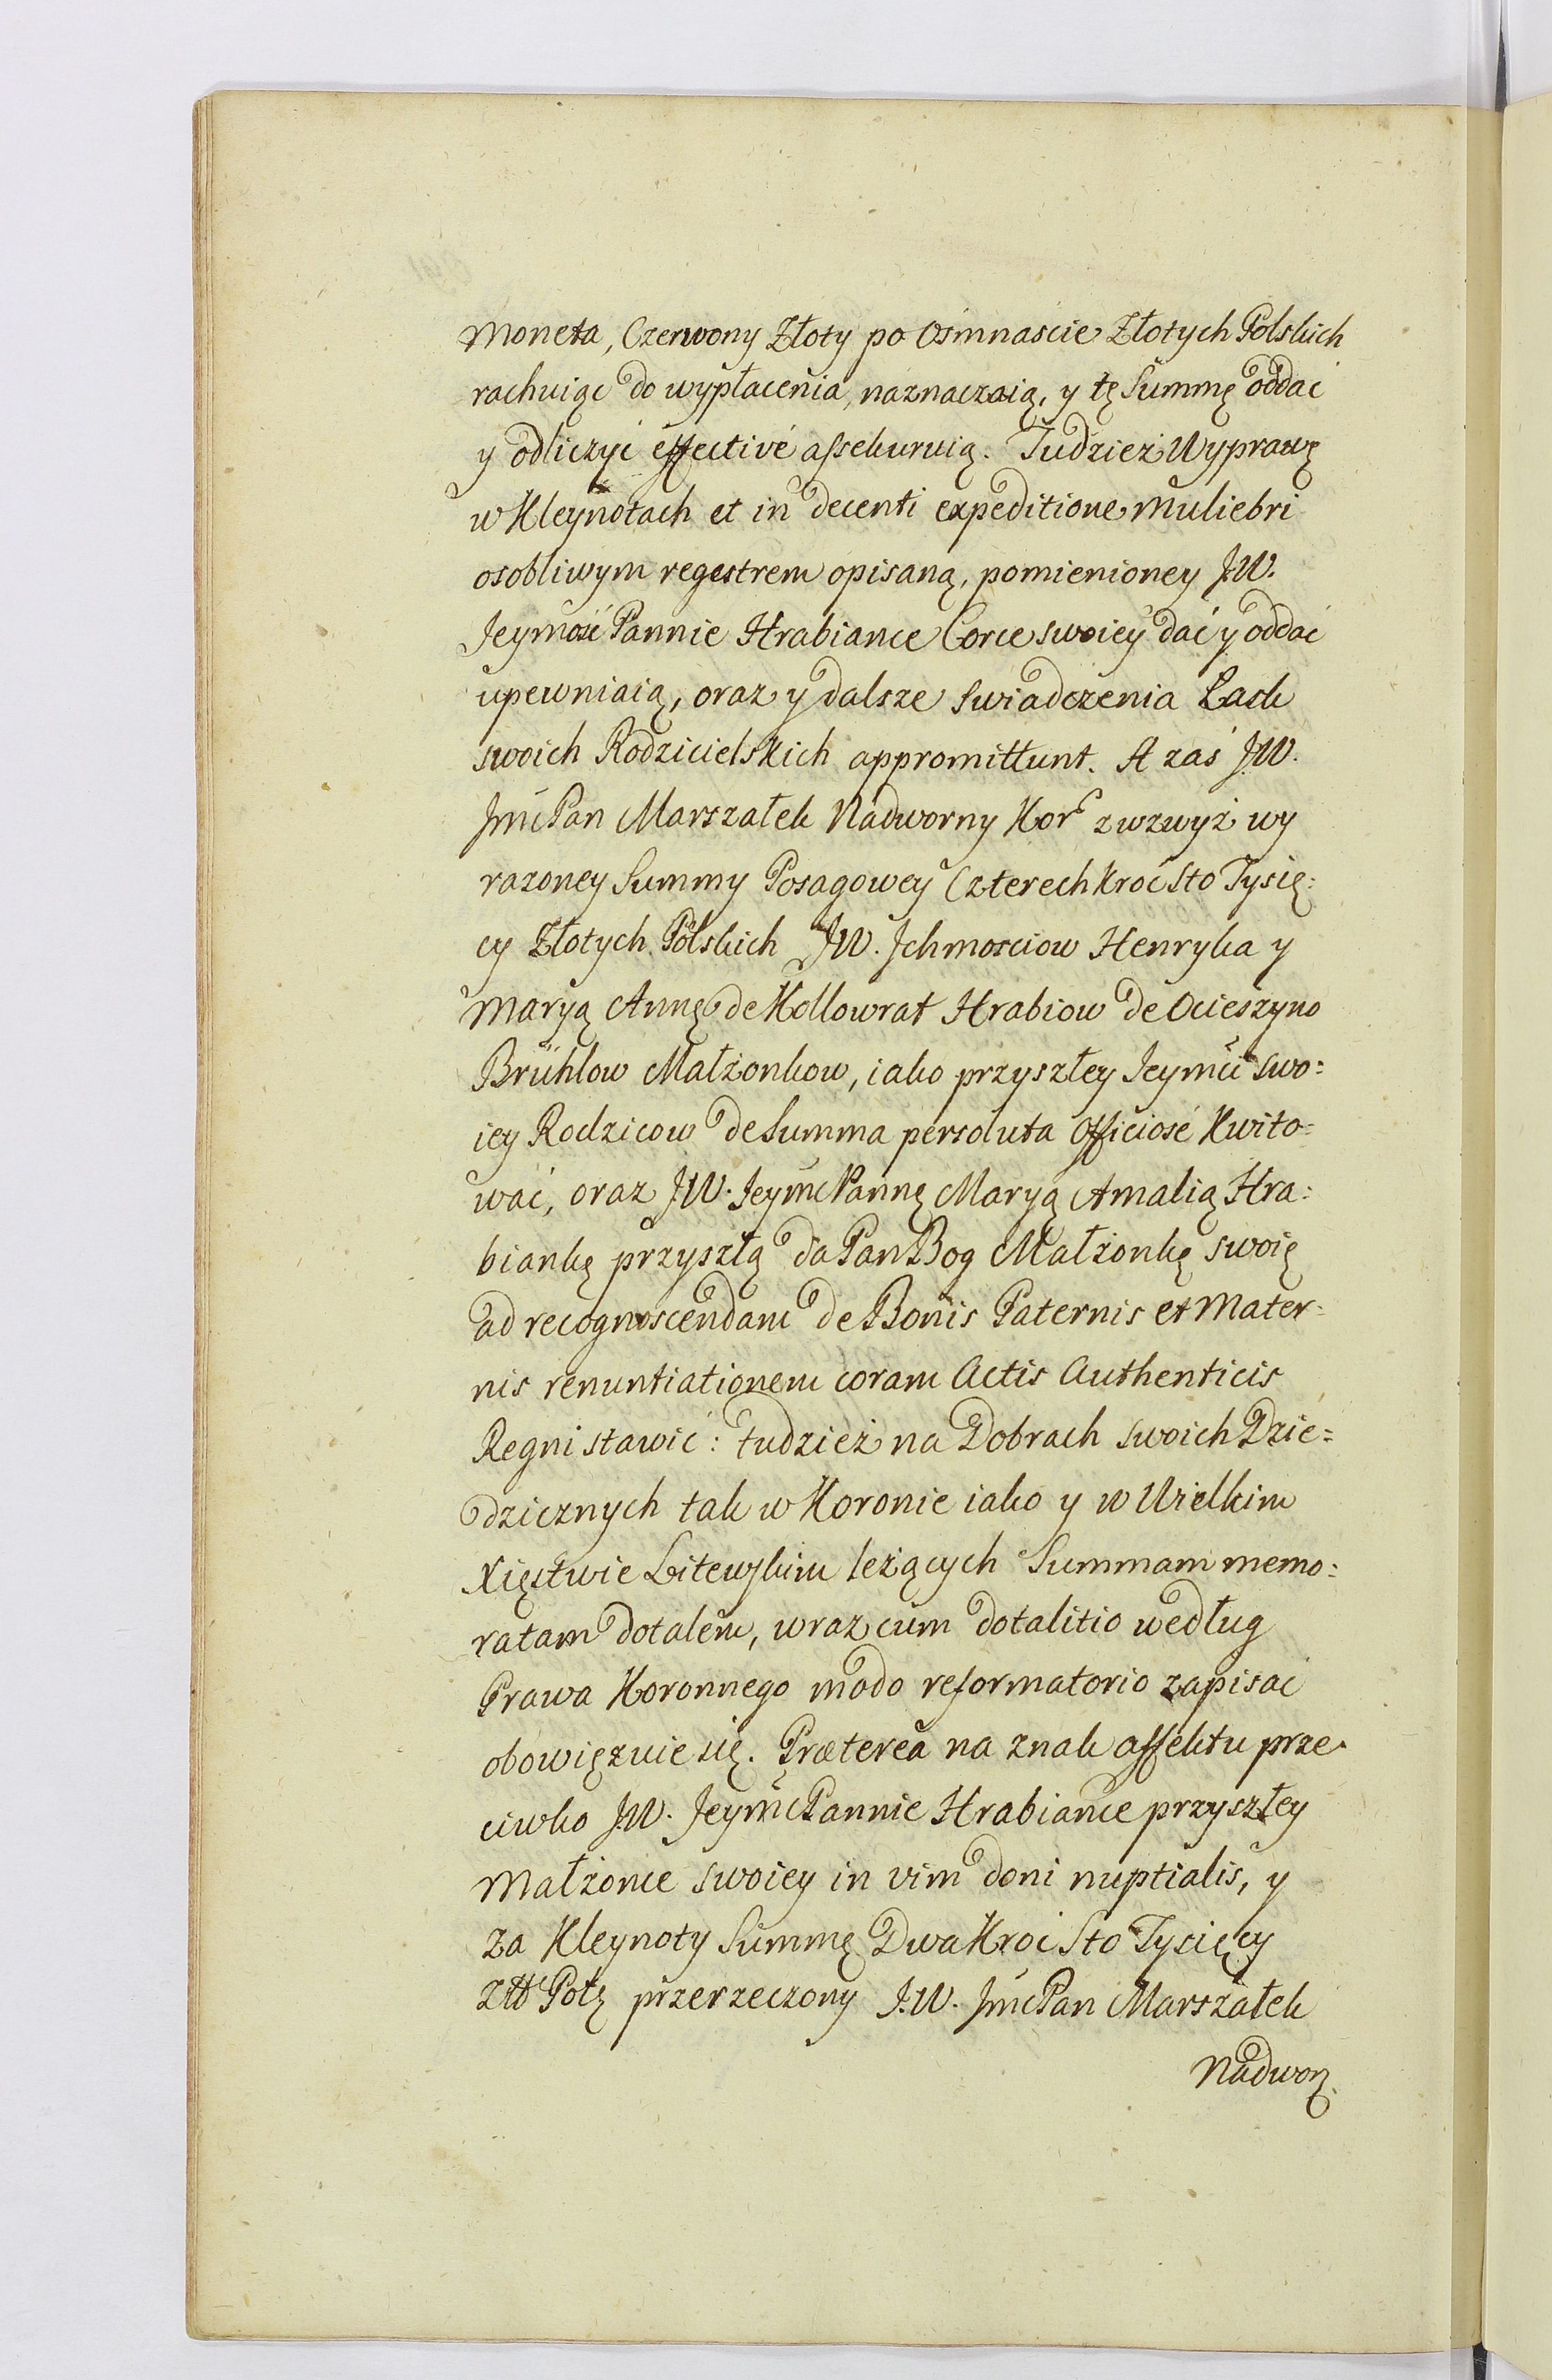 Moneta, Czerwony Złoty po Osmnascie Złotych Polskich
rachuiąc do wypłacenia, naznaczaią, y tę Summę oddać
y odliczyć effectivé assekuruią. Tudzież Wyprawę
w Kleynotach et in decenti expeditione muliebri
osobliwym regestrem opisaną, pomienioney J.W.
Jeymość Pannie Hrabiance Corce swoiey dać y oddać
upewniaią, oraz y dalsze swiadczenia Łask
swoich Rodzicielskich appromittunt. A zaś J.W.
Jmć Pan Marszałek Nadworny Kor: zwzwyż wy
rażoney Summy Posagowey Czterechkroć Sto Tysię:
cy Złotych Polskich JW. Ichmosciow Henryka y
Maryą Annę de Kollowrat Hrabiow de Ocieszyno
Brühlow Małżonkow, iako przyszłey Jeymci swo:
iey Rodzicow de Summa persoluta Officiosé Kwito=
wać, oraz JW. Jeymć Pannę Maryą Amalią Hra:
biankę przyszłą da Pan Bog Małżonkę swoię
ad recognoscendam de Bonis Paternis et Mater=
nis renuntiationem coram Actis Authenticis
Regni stawić: tudzież na Dobrach swoich Dzie=
dzicznych tak w Koronie iako y w Wielkim
Xięstwie Litewskim leżących Summam memo:
ratam dotalem, wraz cum dotalitio według
Prawa Koronnego modo reformatorio zapisać
obowięzuie się. Præterea na znak affektu prze
ciwko J.W. Jeymć Pannie Hrabiance przyszłey
Małżonce swoiey in vim doni nuptialis, y
za Kleynoty Summę Dwakroć Sto Tysięcy
Złł Polę przerzeczony J.W. Jmć Pan Marszałek
Nadwor.